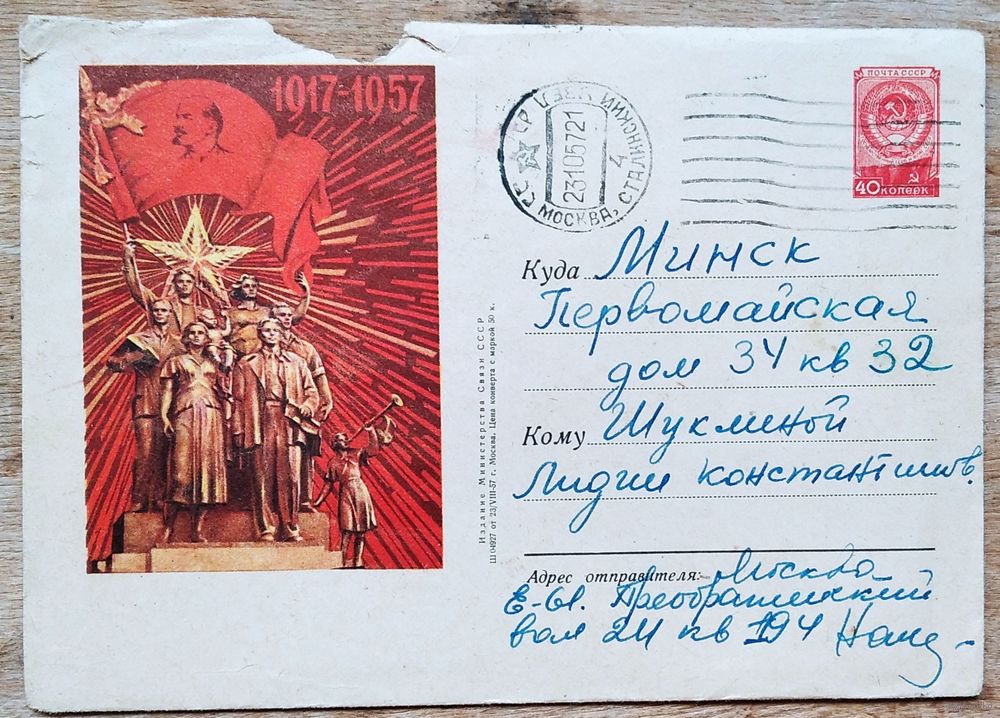 1917-1957
ПОЧТА СССР
40 КОПЕЕК
СССР
МОСКВА, СТАЛИНСКИЙ УЗЕЛ
4
23105721
Куда Минск
Первомайская
дом 34 кв 32
Кому Шукминой
Лидии Константинов.
Издание Министерства Связи СССР
Ш 04927 от 23/VIII-57 г. Москва. Цена конверта с маркой 50 к.
Адрес отправителя: Москва
Е-61. Преображенский
вал 24 кв 194